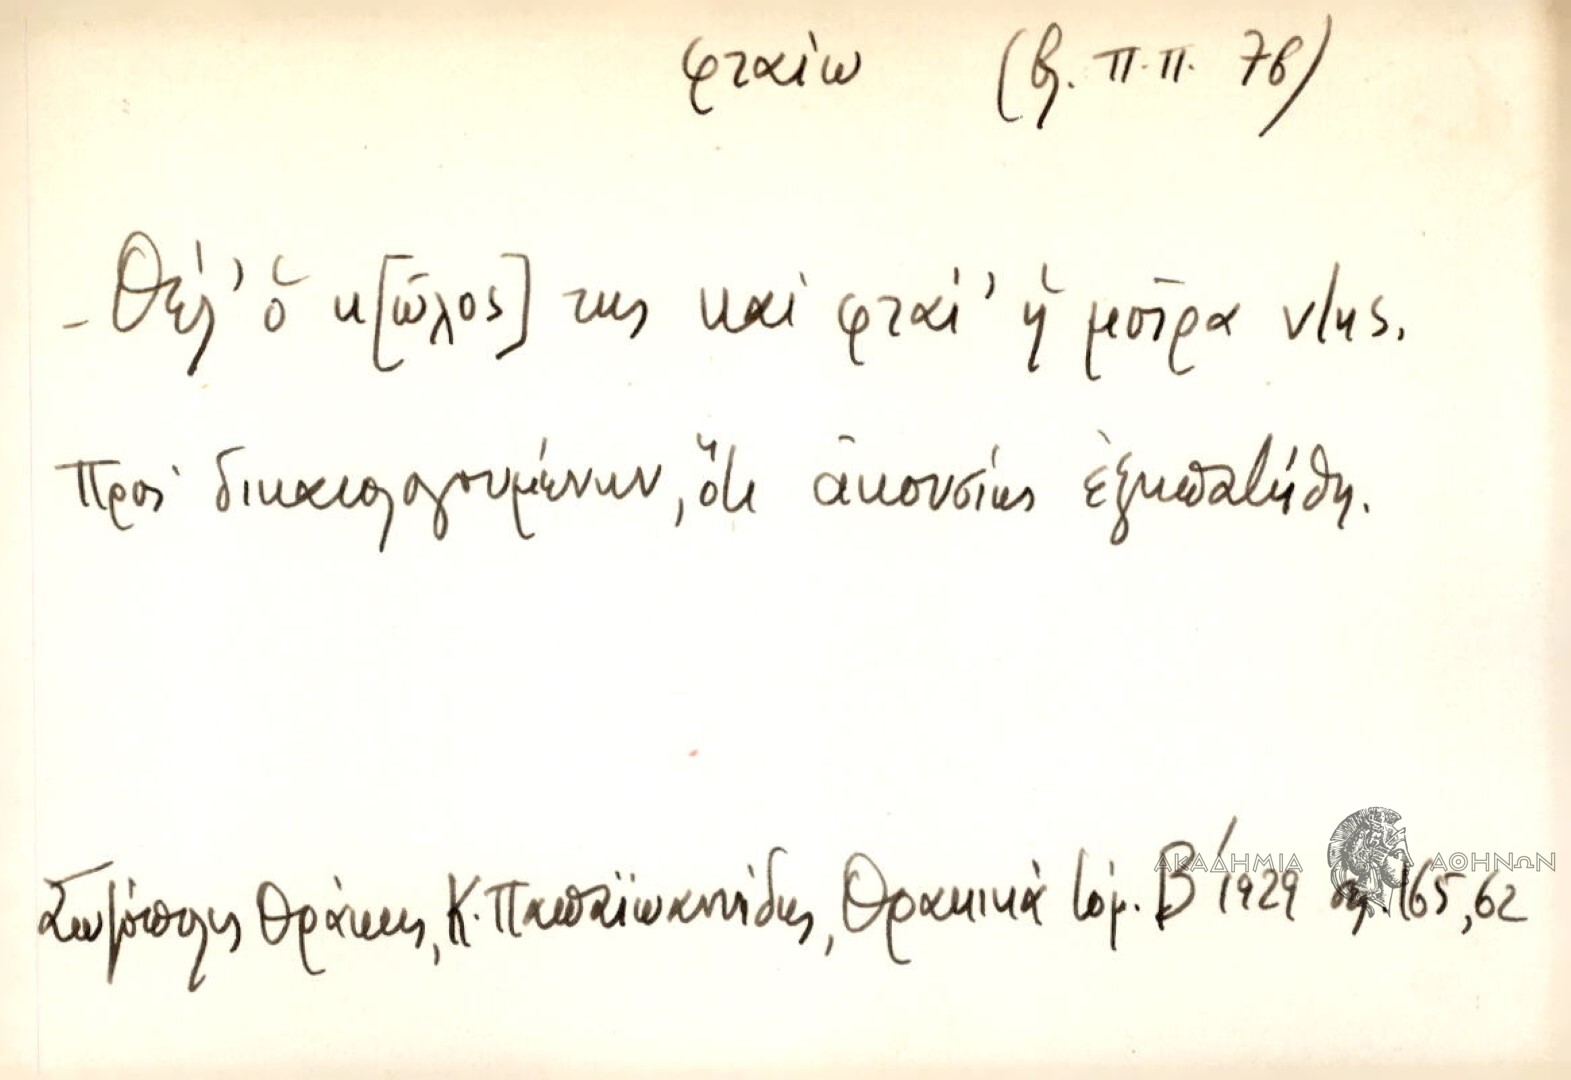 φταίω (βλ. π.π. 7β)
- Θέλ' ὁ κ[ῶλος] της καὶ φταί' ἡ μοῖρα ν/ης.
Πρὸς δικαιολογουμένην, ὅτι ἀκουσίως ἐξηπατήθη.
Σωζόπολις Θράκης, Κ. Παπαϊωαννίδης, Θρακικὰ τόμ. Β' 1929 σ. 165, 62
ΑΚΑΔΗΜΙΑ ΑΘΗΝΩΝ